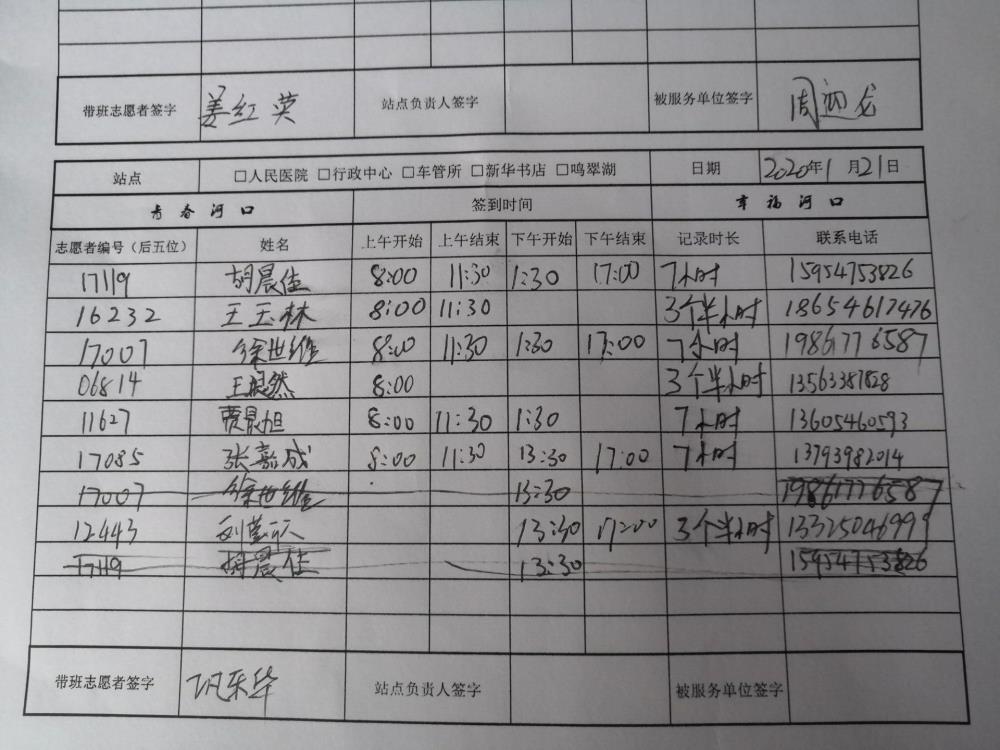 带班志愿者签字 姜红英 站点负责人签字 被服务单位签字
站点 □人民医院 □行政中心 □车管所 □新华书店 □鸣翠湖 日期 2020年1月21日
青春河口 签到时间 幸福河口
志愿者编号（后五位） 姓名 上午开始 上午结束 下午开始 下午结束 记录时长 联系电话
17119 胡晨佳 8:00 11:30 1:30 17:00 7小时 15954753826
16232 王玉林 8:00 11:30 3个半小时 18654617476
17007 徐世维 8:00 11:30 1:30 17:00 7小时 19861776587
06814 8:00 3个半小时 13563387828
11627 贾晨旭 8:00 11:30 1:30 7小时 13605460593
17085 张嘉成 8:00 11:30 13:30 17:00 7小时 13793982014
17007 徐世维 13:30 19861776587
12443 13:30 17:00 3个半小时 13325046999
17119 胡晨佳 13:30 15954753826
带班志愿者签字 站点负责人签字 被服务单位签字